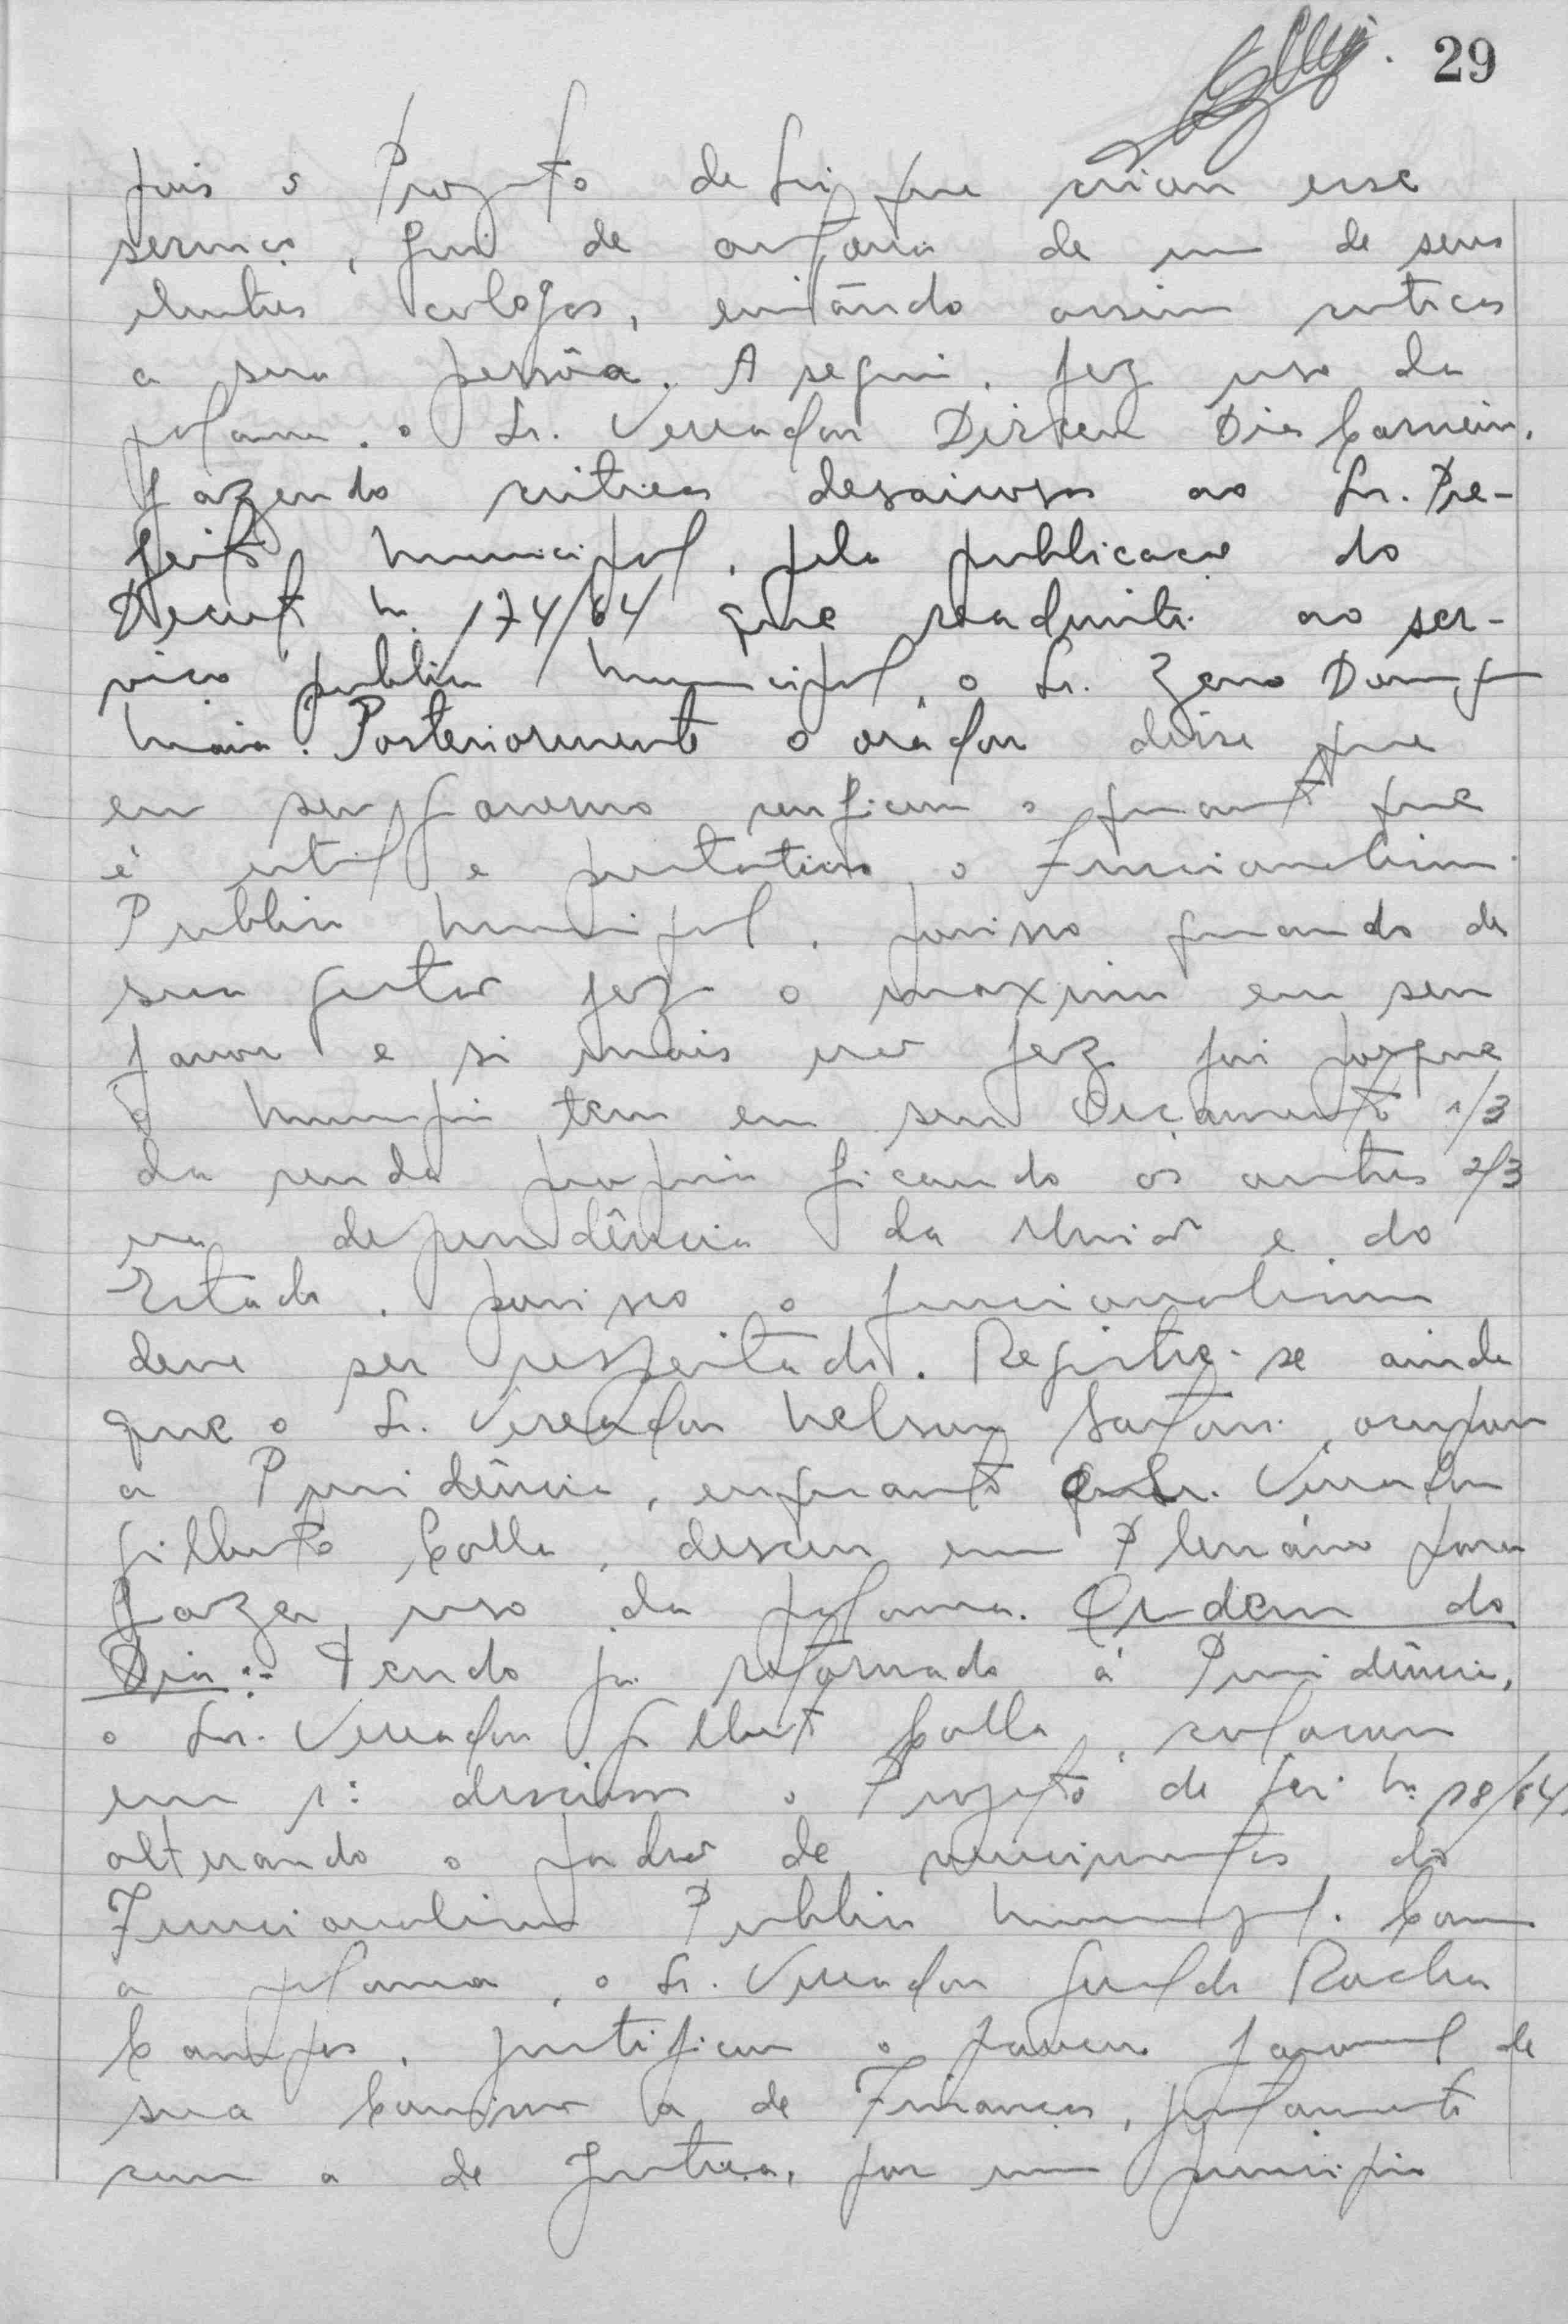 29
pois o Projeto de Lei que criou esse
serviço, foi de autoria de um de seus
ilustres colegas, evitando assim criticas
a sua pessôa. A seguir, fez uso da
palavra, o Sr. Vereador Dirceu Dias Carneiro,
fazendo criticas desairosas ao Sr. Pre-
feito Municipal, pela publicação do
Decreto n. 174/64 que readmite ao ser-
viço publico Municipal, o Sr. Zeno
Maia. Posteriormente o orador disse que
em seu governo verificou o quanto que
é util e prestativo o Funcionalismo
Publico Municipal, por isso quando de
sua gestão fez o maximo em seu
favor e si mais não fez foi porque
o Municipio tem em seu Orçamento 1/3
da renda propria ficando os outros 2/3
na dependência da União e do
Estado, por isso o funcionalismo
deve ser respeitado. Registre-se ainda
que o Sr. Vereador Nelson Sartori, ocupou
a Presidência, enquanto o Sr. Vereador
Gilberto Colla, desceu em Plenário para
fazer uso da palavra. Ordem do
Dia:- Tendo ja retornado á Presidência,
o Sr. Vereador Gilberto Colla, colocou
em 1ª discussão o Projeto de Lei n. 18/64,
alterando o padrão de vencimentos do
Funcionalismo Publico Municipal. Com
a palavra, o Sr. Vereador Geraldo Rocha
Campos, justificou o parecer favoravel de
sua Comissão a de Finanças, juntamente
com a de Justiça, por um principio